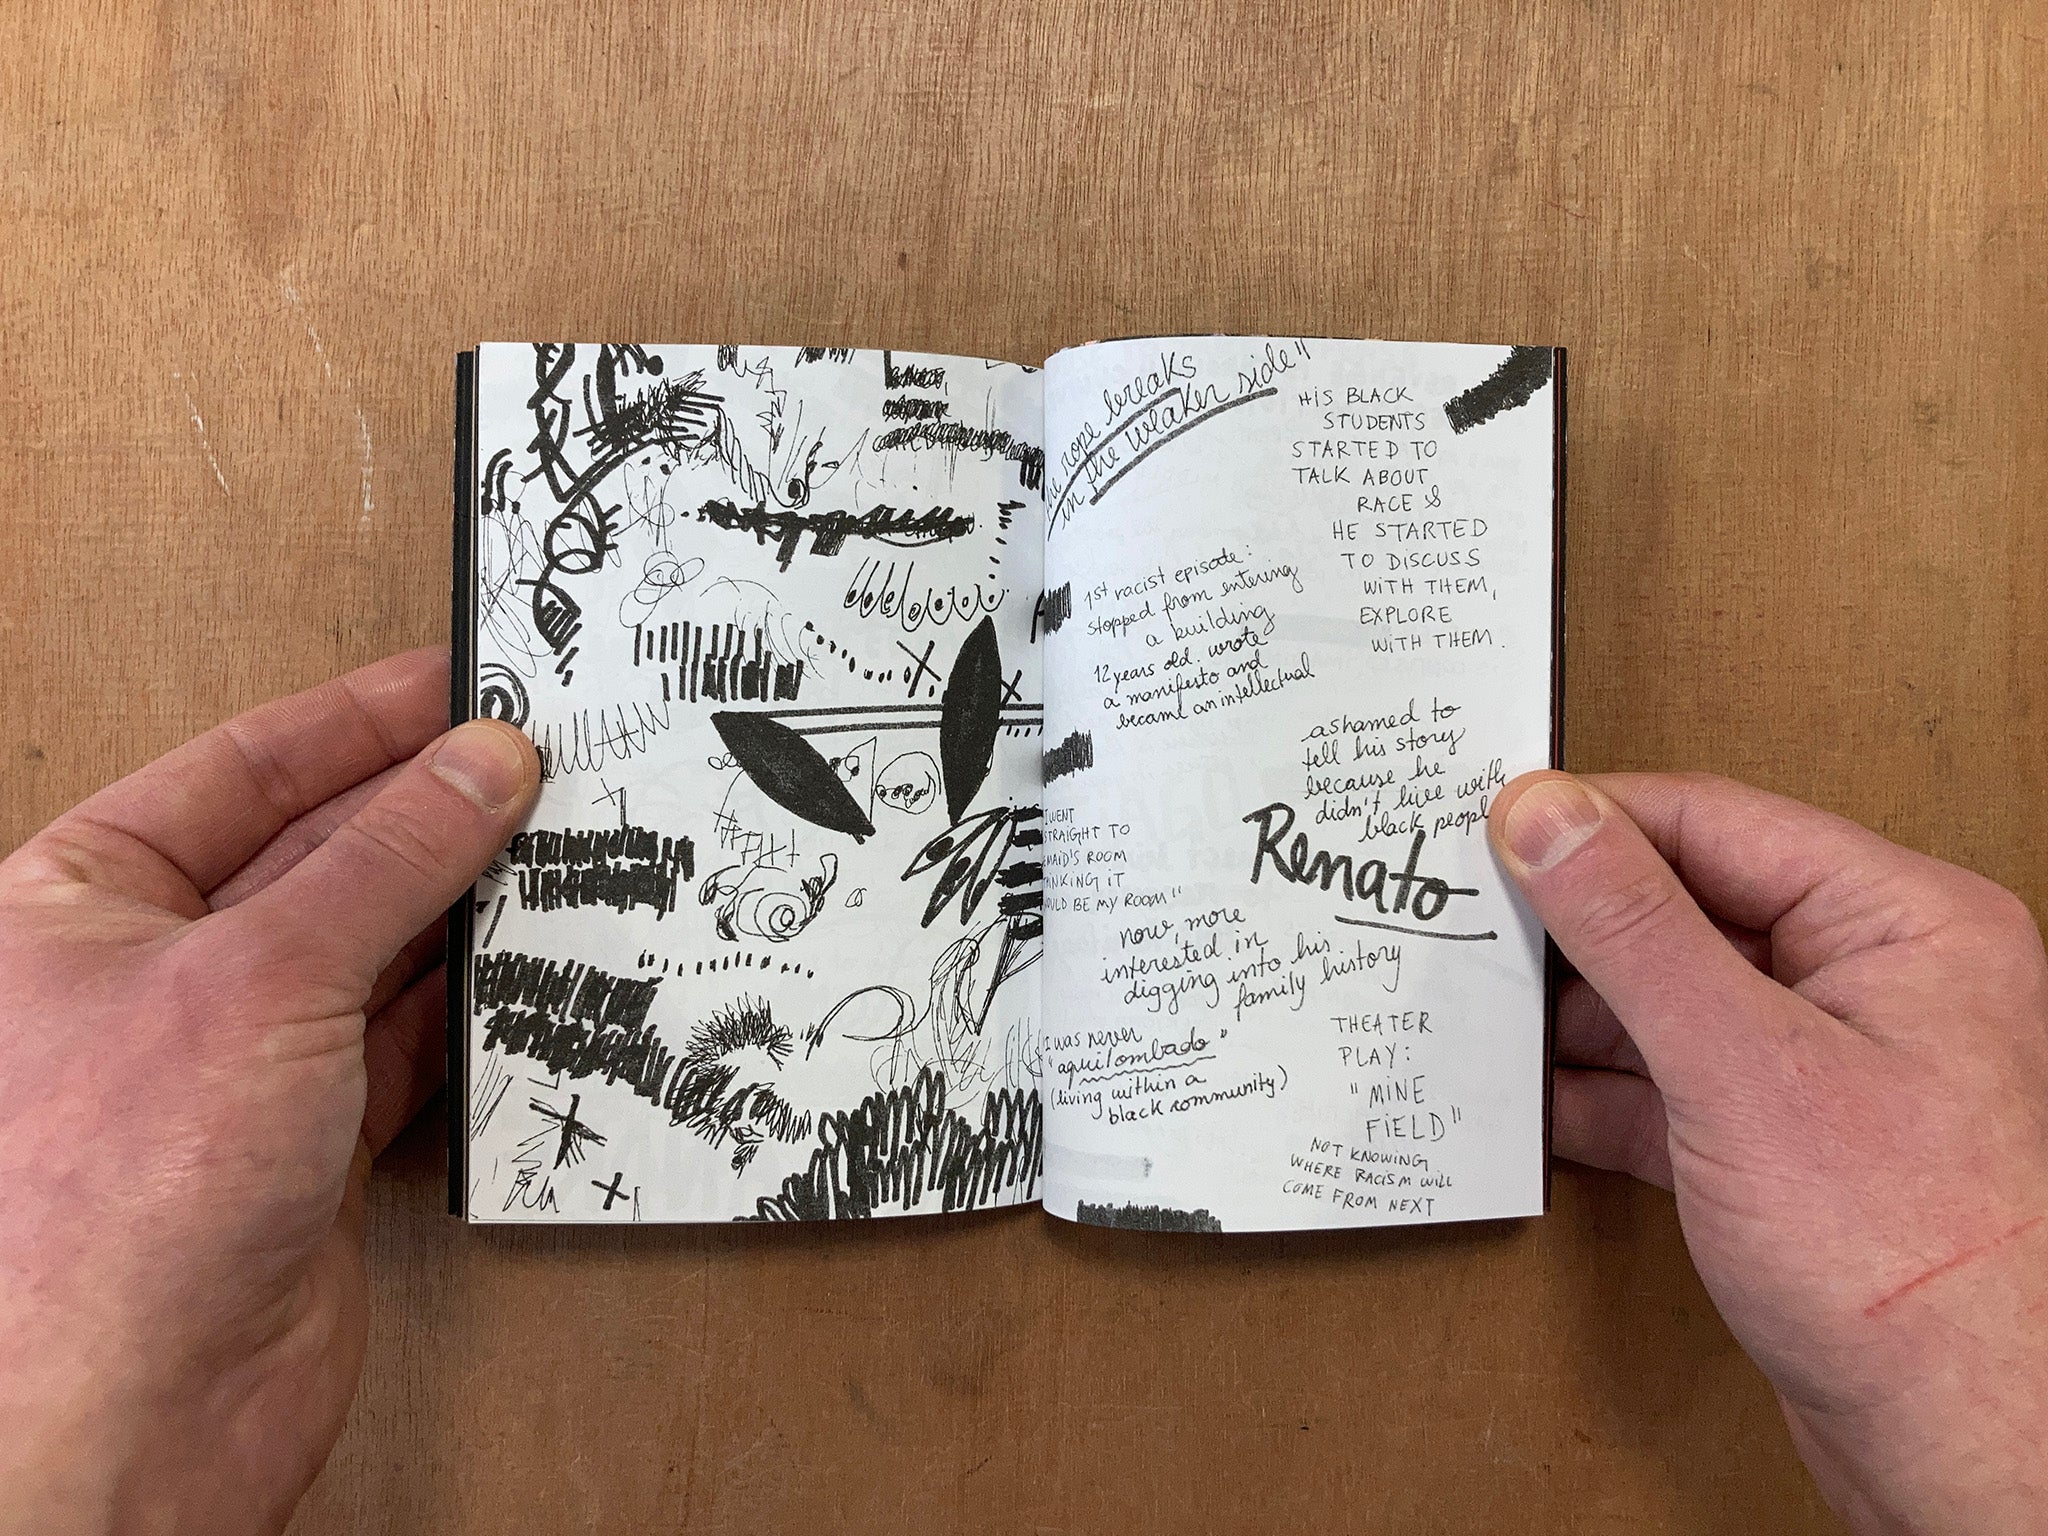 rope breaks
in the weaker side"
HiS BLACK
STUDENTS
STARTED TO
TALK ABOUT
RACE &
HE STARTED
TO DiSCUSS
WiTH THEM,
EXPLORE
WiTH THEM.
1st racist episode:
stopped from entering
a building
12 years old. wrote
a manifesto and
became an intellectual
ashamed to
tell his story
because he
didn't live with
black peopl
Renato
I WENT
STRAIGHT TO
MAiD'S ROOM
iT
BE MY ROOM"
now, more
interested in
digging into his
family history
I was never
"aquilombado"
(living within a
black community)
THEATER
PLAY:
"MiNE
FiELD"
NOT KNOWiNG
WHERE RACiSM WiLL
COME FROM NEXT